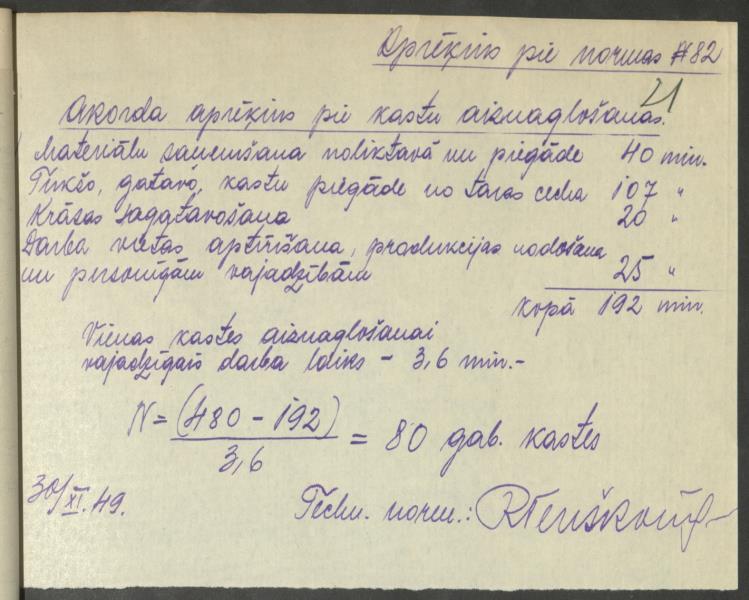 Aprēķins pie normas № 82
21
Akorda aprēķins pie kastu aiznaglošanas.
Materiālu saņemšana noliktavā un piegāde 40 min.
Tukšo, gatavo, kastu piegāde no taras cecha 107 "
Krāsas sagatavošana 20 "
Darba vietas aptīrīšana, produkcijas nodošana
un personīgām vajadzībām 25 "
kopā 192 min.
Vienas kastes aiznaglošanai
vajadzīgais darba laiks - 3,6 min.-
N = (480 - 192) / 3,6 = 80 gab. kastes
30/XI.49. Techn. norm.: